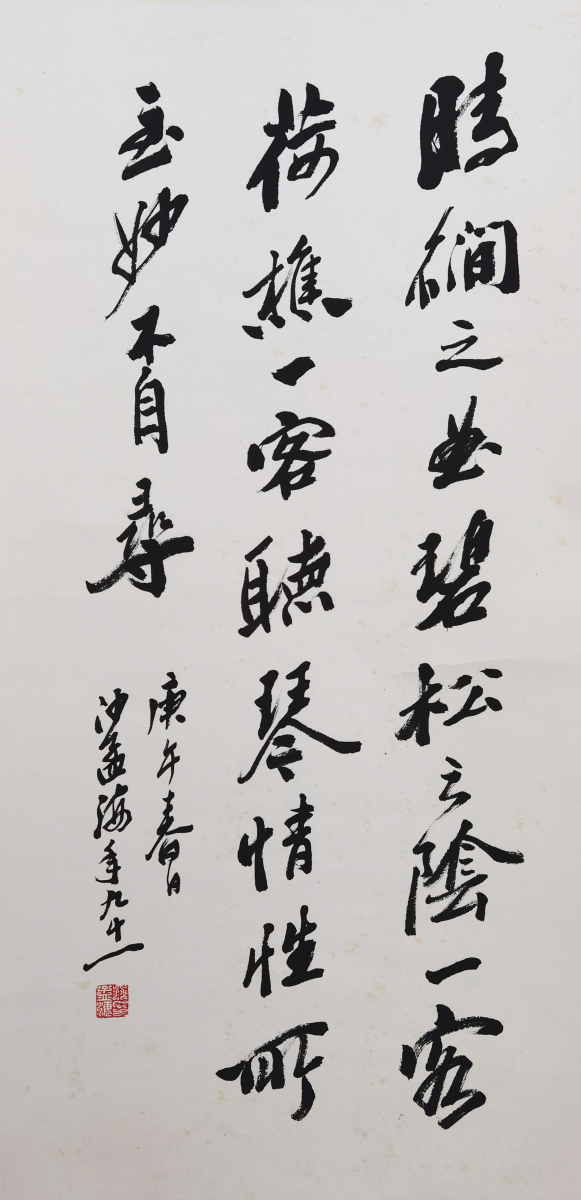 晴澗之曲碧松之陰一客
荷樵一客聽琴情性所
至妙不自尋
庚午春日
沙孟海年九十一